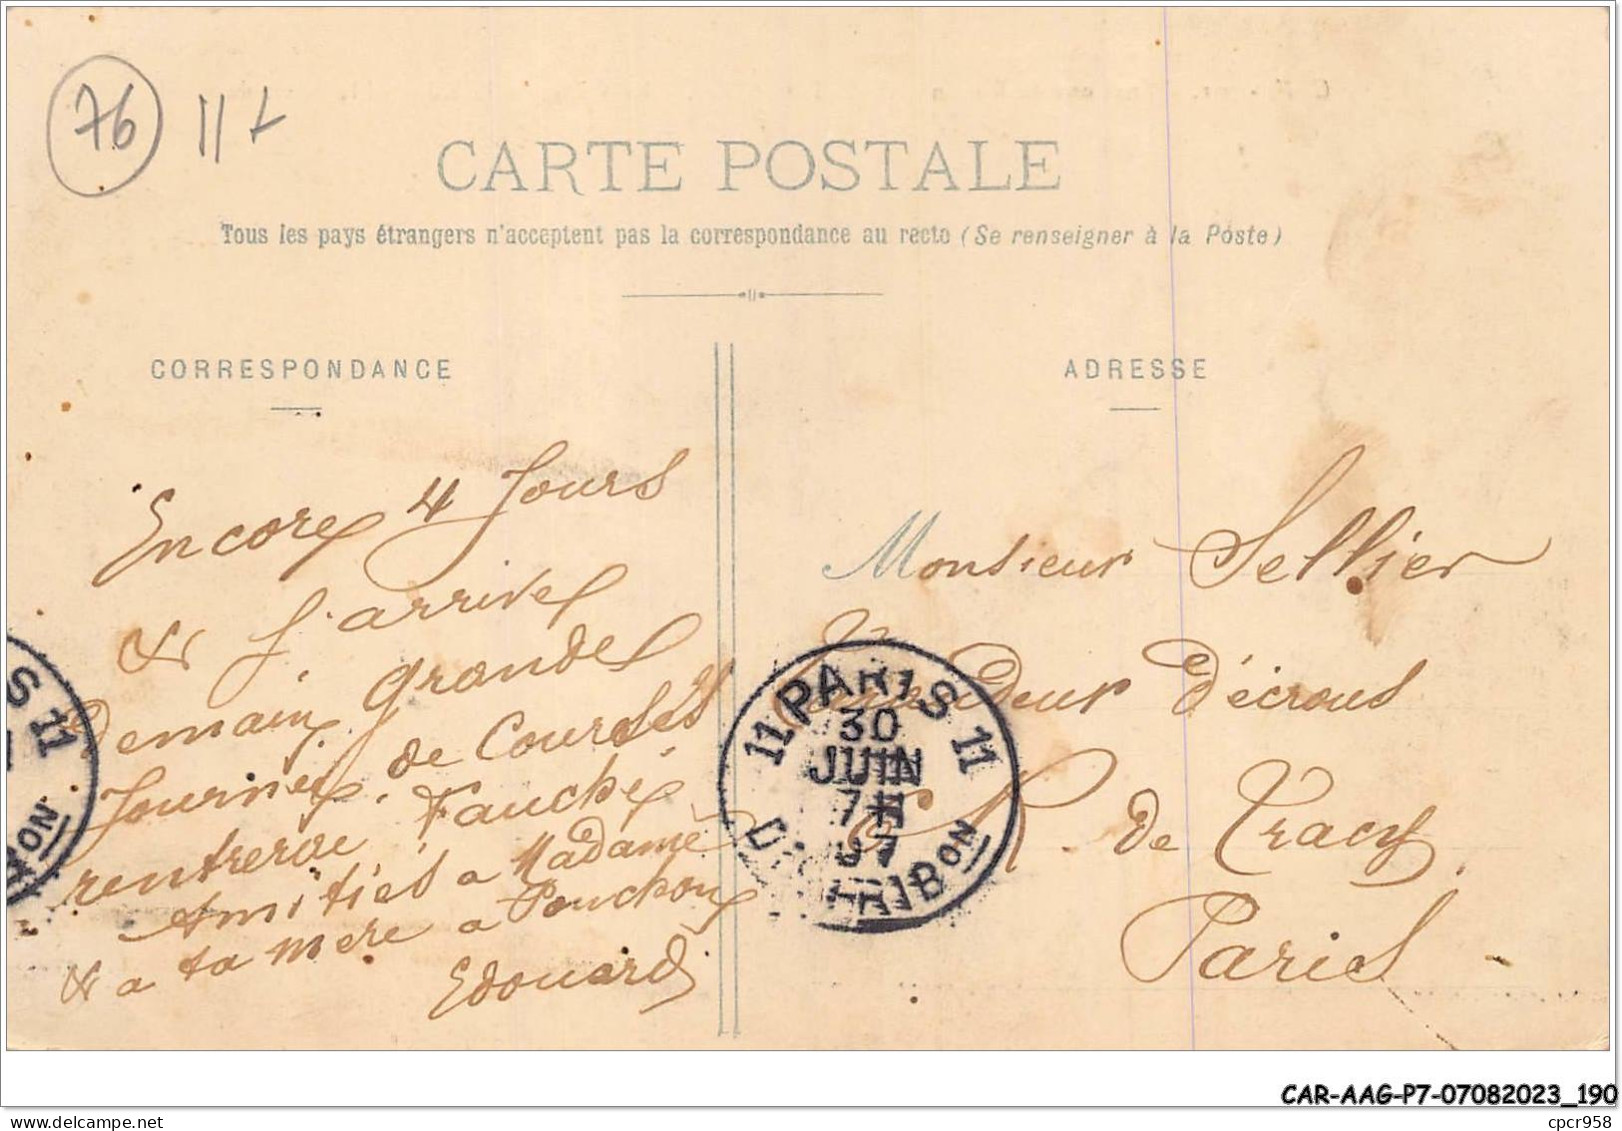 76 11 L
CARTE POSTALE
Tous les pays étrangers n'acceptent pas la correspondance au recto (Se renseigner à la Poste)
CORRESPONDANCE
Encore 4 Jours
& J'arrive
Demain grande
Journée de Courses
rentrerai Fauché
Amitiés a Madame
& a ta mere a Pouchou
Edouard
ADRESSE
Monsieur Sellier
Décrous
R. de Tracy
Paris
11 PARIS 11
30
JUIN
7 H
07
DISTRIBON
S 11
ON
CAR-AAG-P7-07082023_190
www.delcampe.net
cpcr958